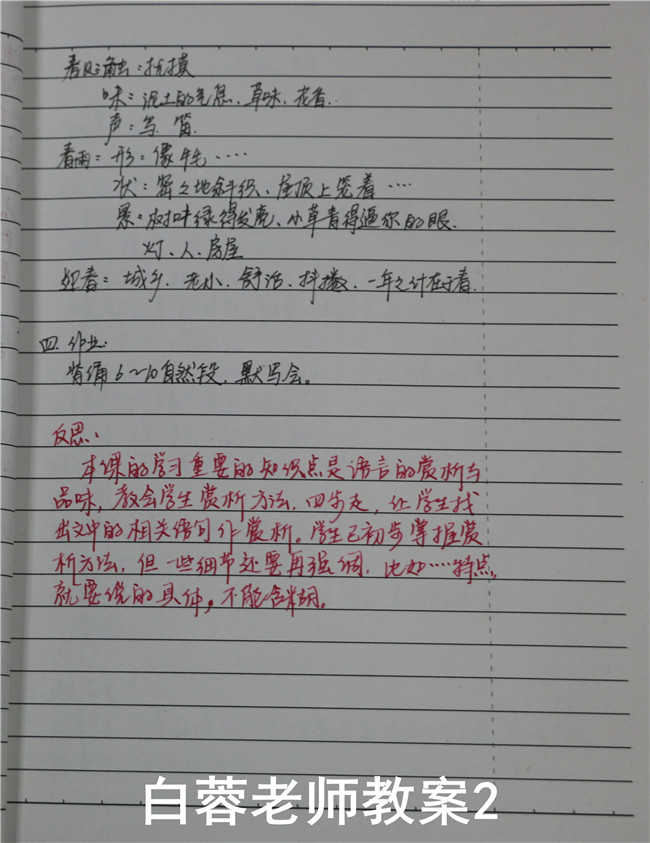 春风:触:抚摸
味:泥土的气息、草味、花香.
声:鸟、笛.
春雨:形:像牛毛····
状:密密地斜织、屋顶上笼着····
景:树叶绿得发亮、小草青得逼你的眼.
灯、人、房屋
迎春:城乡、老小、舒活、抖擞、一年之计在于春.
四.作业:
背诵6~10自然段,默写会。
反思:
本课的学习重要的知识点是语言的赏析与
品味,教会学生赏析方法,四步走,让学生找
出文中的相关语句作赏析。学生已初步掌握赏
析方法,但一些细节还要再强调,比如····特点,
就要说的具体,不能含糊。
白蓉老师教案2